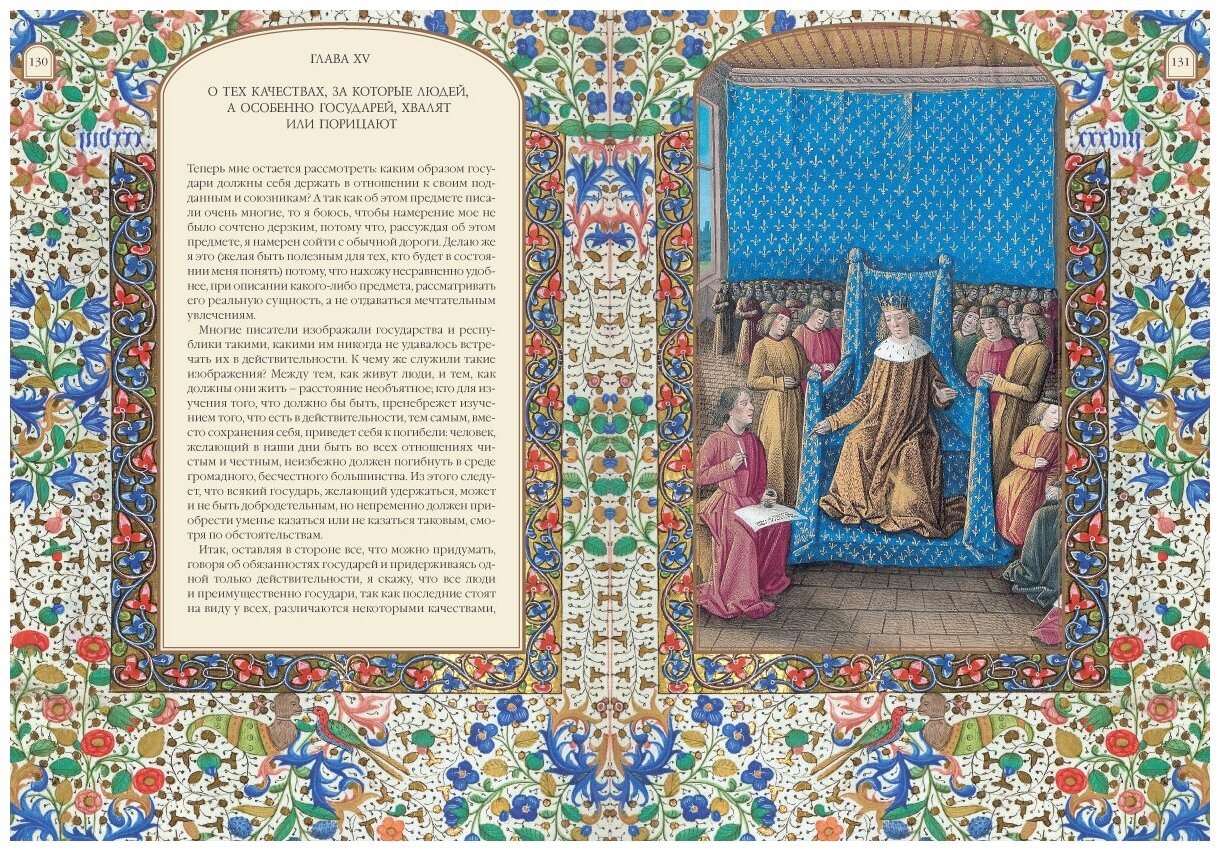 130
ГЛАВА XV
О ТЕХ КАЧЕСТВАХ, ЗА КОТОРЫЕ ЛЮДЕЙ,
А ОСОБЕННО ГОСУДАРЕЙ, ХВАЛЯТ
ИЛИ ПОРИЦАЮТ
Теперь мне остается рассмотреть: каким образом госу-
дари должны себя держать в отношении к своим под-
данным и союзникам? А так как об этом предмете писа-
ли очень многие, то я боюсь, чтобы намерение мое не
было сочтено дерзким, потому что, рассуждая об этом
предмете, я намерен сойти с обычной дороги. Делаю же
я это (желая быть полезным для тех, кто будет в состоя-
нии меня понять) потому, что нахожу несравненно удоб-
нее, при описании какого-либо предмета, рассматривать
его реальную сущность, а не отдаваться мечтательным
увлечениям.
Многие писатели изображали государства и респу-
блики такими, какими им никогда не удавалось встре-
чать их в действительности. К чему же служили такие
изображения? Между тем, как живут люди, и тем, как
должны они жить – расстояние необъятное; кто для из-
учения того, что должно бы быть, пренебрежет изуче-
нием того, что есть в действительности, тем самым, вме-
сто сохранения себя, приведет себя к погибели: человек,
желающий в наши дни быть во всех отношениях чи-
стым и честным, неизбежно должен погибнуть в среде
громадного, бесчестного большинства. Из этого следу-
ет, что всякий государь, желающий удержаться, может
и не быть добродетельным, но непременно должен при-
обрести уменье казаться или не казаться таковым, смо-
тря по обстоятельствам.
Итак, оставляя в стороне все, что можно придумать,
говоря об обязанностях государей и придерживаясь од-
ной только действительности, я скажу, что все люди
и преимущественно государи, так как последние стоят
на виду у всех, различаются некоторыми качествами,
131
xxxviij